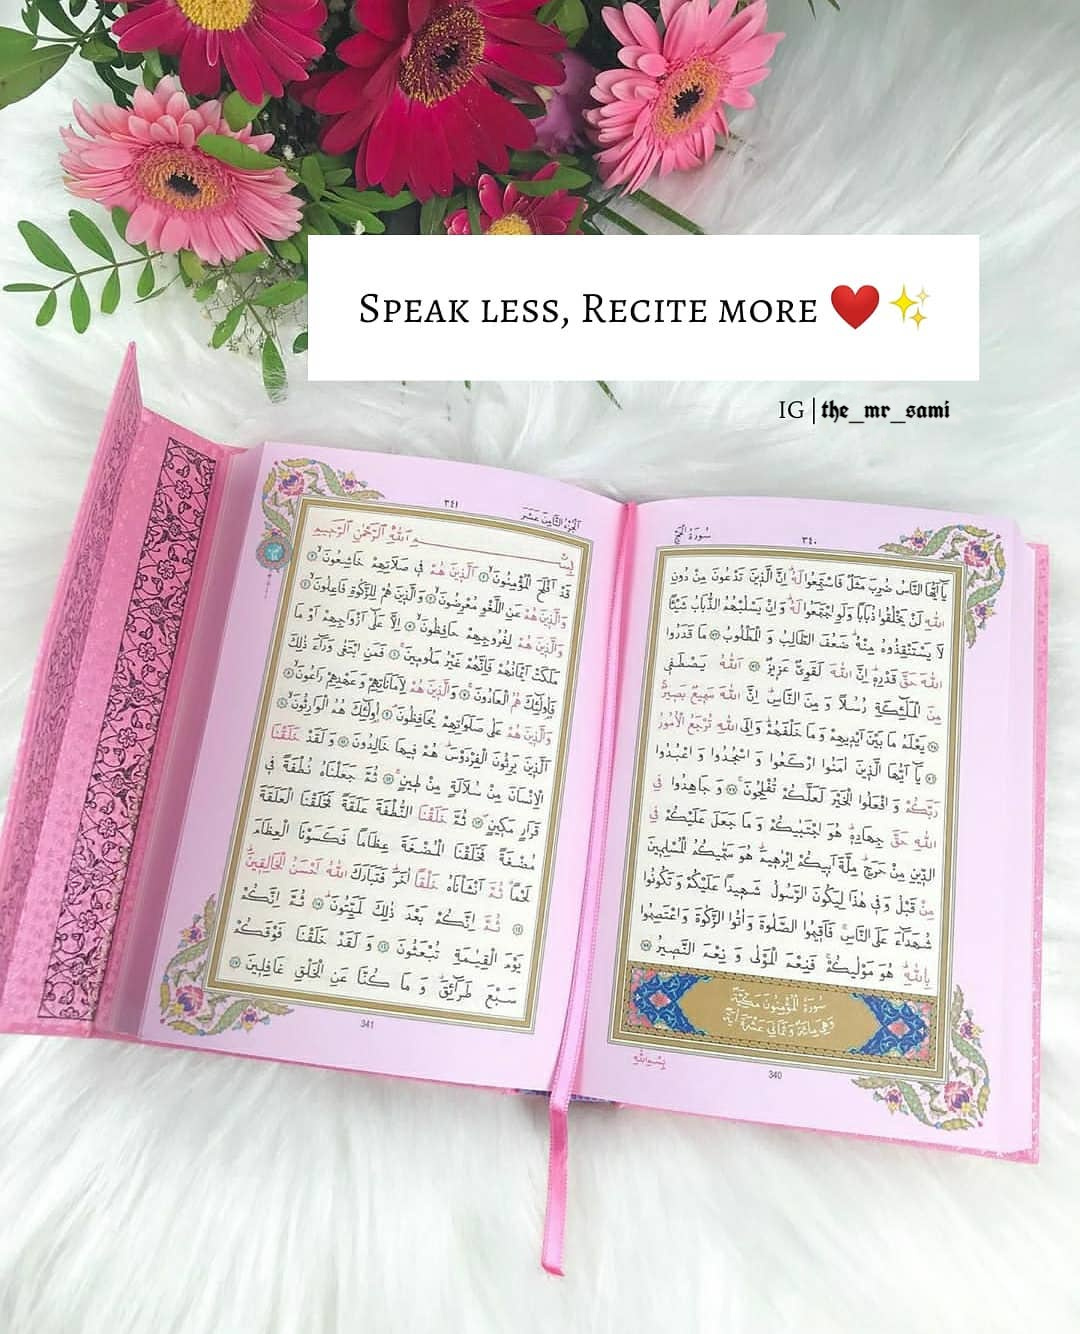 SPEAK LESS, RECITE MORE ❤️✨
IG | the_mr_sami
سُورَةُ الْحَجِّ ٣٤٠
يَٓا اَيُّهَا النَّاسُ ضُرِبَ مَثَلٌ فَاسْتَمِعُوا لَهُ اِنَّ الَّذِينَ تَدْعُونَ مِنْ دُونِ
اللّٰهِ لَنْ يَخْلُقُوا ذُبَابًا وَلَوِ اجْتَمَعُوا لَهُ وَاِنْ يَسْلُبْهُمُ الذُّبَابُ شَيْـًٔا
لَا يَسْتَنْقِذُوهُ مِنْهُ ضَعُفَ الطَّالِبُ وَالْمَطْلُوبُ ٧٣ مَا قَدَرُوا
اللّٰهَ حَقَّ قَدْرِهِ اِنَّ اللّٰهَ لَقَوِيٌّ عَزِيزٌ ٧٤ اَللّٰهُ يَصْطَفِي
مِنَ الْمَلٰٓئِكَةِ رُسُلًا وَمِنَ النَّاسِ اِنَّ اللّٰهَ سَمِيعٌ بَصِيرٌ
٧٥ يَعْلَمُ مَا بَيْنَ اَيْدِيهِمْ وَمَا خَلْفَهُمْ وَاِلَى اللّٰهِ تُرْجَعُ الْاُمُورُ
٧٦ يَٓا اَيُّهَا الَّذِينَ اٰمَنُوا ارْكَعُوا وَاسْجُدُوا وَاعْبُدُوا
رَبَّكُمْ وَافْعَلُوا الْخَيْرَ لَعَلَّكُمْ تُفْلِحُونَ ٧٧ وَجَاهِدُوا فِي
اللّٰهِ حَقَّ جِهَادِهِ هُوَ اجْتَبٰيكُمْ وَمَا جَعَلَ عَلَيْكُمْ فِي
الدِّينِ مِنْ حَرَجٍ مِلَّةَ اَبِيكُمْ اِبْرٰهِيمَ هُوَ سَمّٰيكُمُ الْمُسْلِمِينَ
مِنْ قَبْلُ وَفِي هٰذَا لِيَكُونَ الرَّسُولُ شَهِيدًا عَلَيْكُمْ وَتَكُونُوا
شُهَدَٓاءَ عَلَى النَّاسِ فَاَقِيمُوا الصَّلٰوةَ وَاٰتُوا الزَّكٰوةَ وَاعْتَصِمُوا
بِاللّٰهِ هُوَ مَوْلٰيكُمْ فَنِعْمَ الْمَوْلٰى وَنِعْمَ النَّصِيرُ ٧٨
سُورَةُ الْمُؤْمِنُونَ مَكِّيَّةٌ
وَهِيَ مِائَةٌ وَثَمَانِي عَشْرَةَ اٰيَةً
بِسْمِ اللّٰهِ
340
اَلْجُزْءُ الثَّامِنَ عَشَرَ ٣٤١
بِسْمِ اللّٰهِ الرَّحْمٰنِ الرَّحِيمِ
قَدْ اَفْلَحَ الْمُؤْمِنُونَ ١ اَلَّذِينَ هُمْ فِي صَلَاتِهِمْ خَاشِعُونَ ٢
وَالَّذِينَ هُمْ عَنِ اللَّغْوِ مُعْرِضُونَ ٣ وَالَّذِينَ هُمْ لِلزَّكٰوةِ فَاعِلُونَ ٤
وَالَّذِينَ هُمْ لِفُرُوجِهِمْ حَافِظُونَ ٥ اِلَّا عَلٰٓى اَزْوَاجِهِمْ اَوْ مَا
مَلَكَتْ اَيْمَانُهُمْ فَاِنَّهُمْ غَيْرُ مَلُومِينَ ٦ فَمَنِ ابْتَغٰى وَرَٓاءَ ذٰلِكَ
فَاُو۬لٰٓئِكَ هُمُ الْعَادُونَ ٧ وَالَّذِينَ هُمْ لِاَمَانَاتِهِمْ وَعَهْدِهِمْ رَاعُونَ ٨
وَالَّذِينَ هُمْ عَلٰى صَلَوَاتِهِمْ يُحَافِظُونَ ٩ اُو۬لٰٓئِكَ هُمُ الْوَارِثُونَ ١٠
اَلَّذِينَ يَرِثُونَ الْفِرْدَوْسَ هُمْ فِيهَا خَالِدُونَ ١١ وَلَقَدْ خَلَقْنَا
الْاِنْسَانَ مِنْ سُلَالَةٍ مِنْ طِينٍ ١٢ ثُمَّ جَعَلْنَاهُ نُطْفَةً فِي
قَرَارٍ مَكِينٍ ١٣ ثُمَّ خَلَقْنَا النُّطْفَةَ عَلَقَةً فَخَلَقْنَا الْعَلَقَةَ
مُضْغَةً فَخَلَقْنَا الْمُضْغَةَ عِظَامًا فَكَسَوْنَا الْعِظَامَ
لَحْمًا ثُمَّ اَنْشَأْنَاهُ خَلْقًا اٰخَرَ فَتَبَارَكَ اللّٰهُ اَحْسَنُ الْخَالِقِينَ
١٤ ثُمَّ اِنَّكُمْ بَعْدَ ذٰلِكَ لَمَيِّتُونَ ١٥ ثُمَّ اِنَّكُمْ
يَوْمَ الْقِيٰمَةِ تُبْعَثُونَ ١٦ وَلَقَدْ خَلَقْنَا فَوْقَكُمْ
سَبْعَ طَرَٓائِقَ وَمَا كُنَّا عَنِ الْخَلْقِ غَافِلِينَ ١٧
341